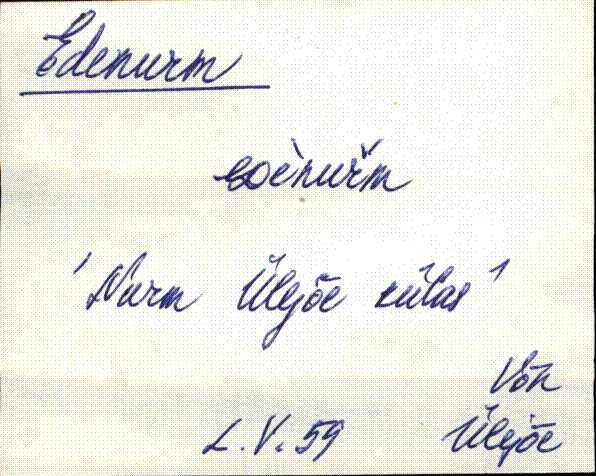 Edenurm
eoènuřm
'Nurm Üljõe külas'
Võn
L.V. 59 Üljõe